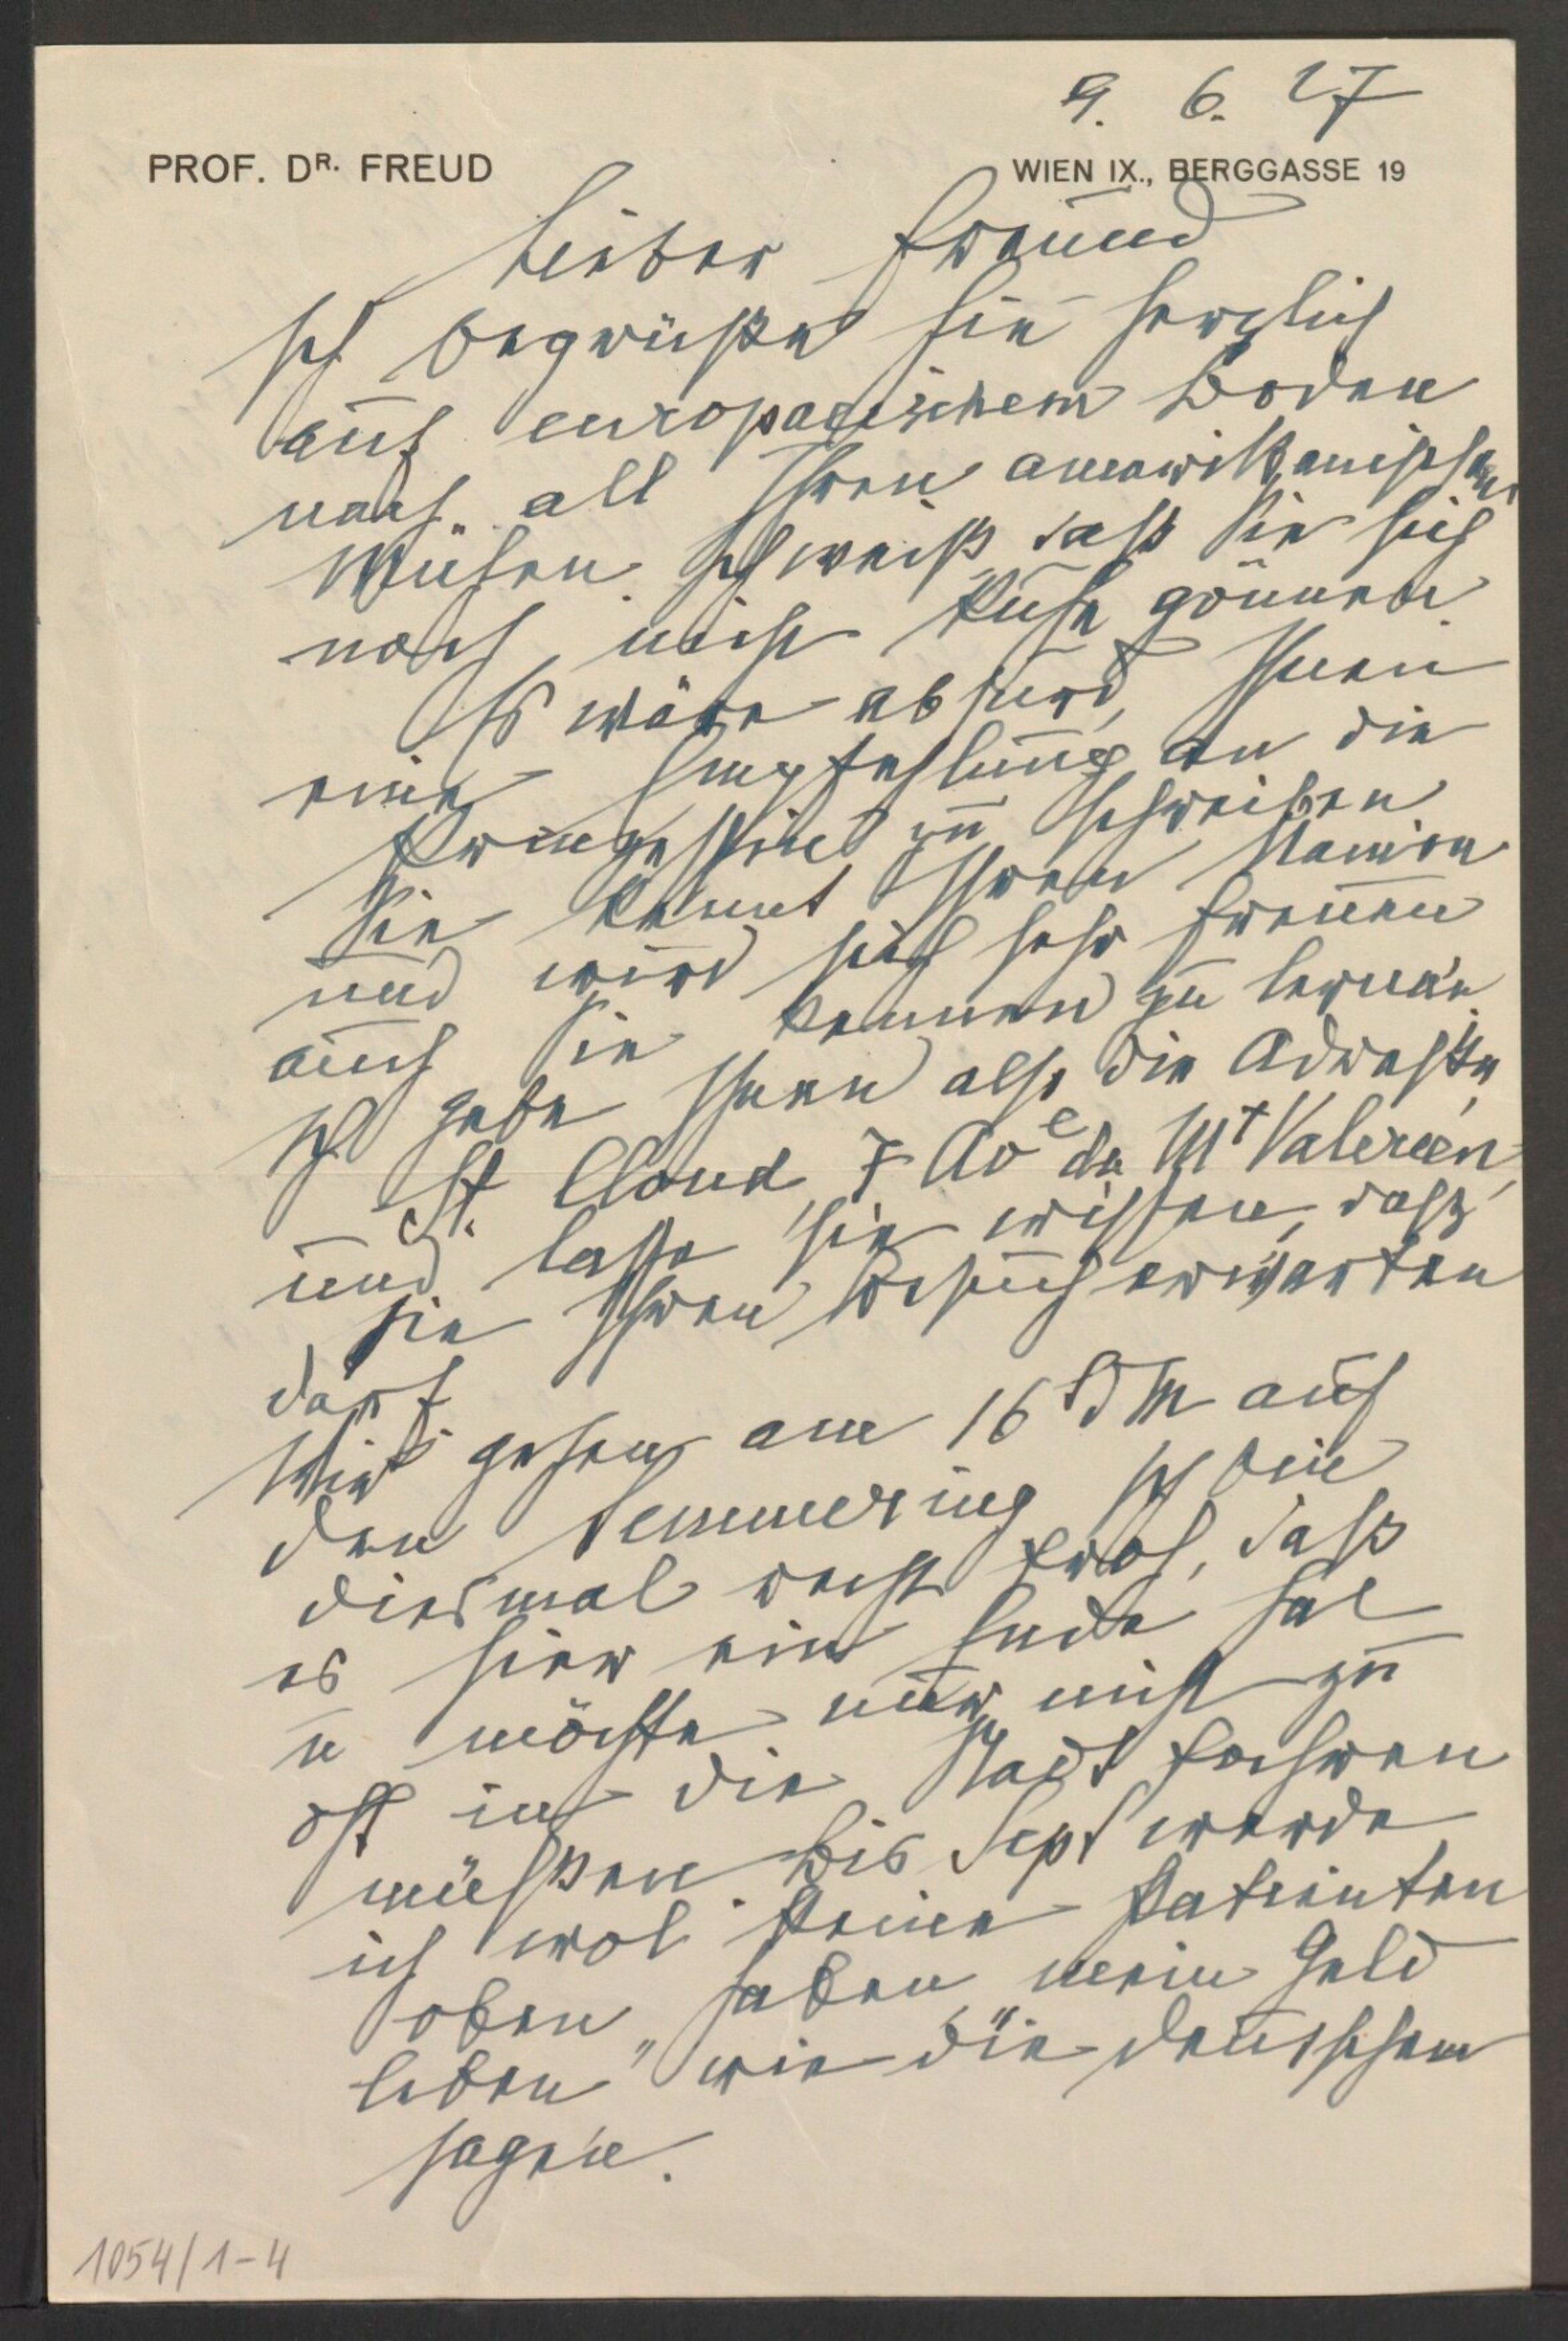 9. 6. 27
PROF. DR. FREUD
WIEN IX., BERGGASSE 19
Lieber Freund
Ich begrüße Sie herzlich
auf europaeischem Boden
nach all Ihren amerikanischen
Mühen. Ich weiß, daß Sie sich
noch nicht Ruhe gönnen.
Es wäre absurd, Ihnen
eine Empfehlung an die
Prinzessin zu schreiben
Sie kennt Ihren Namen
und wird sich sehr freuen
auch Sie kennen zu lernen.
Ich gebe Ihnen also die Adresse,
St. Cloud, 7 Ave du Mt Valerien,
und lasse sie wissen, daß
sie Ihren Besuch erwarten
darf.
Wir gehen am 16 d M auf
den Semmering Ich bin
diesmal recht froh, daß
es hier ein Ende hat
u möchte nur nicht zu
oft in die Stadt fahren
müßen Bis Sept werde
ich wol keine Patienten
oben haben, mein Geld
"leben" wie die Deutschen
sagen.
1054/1-4